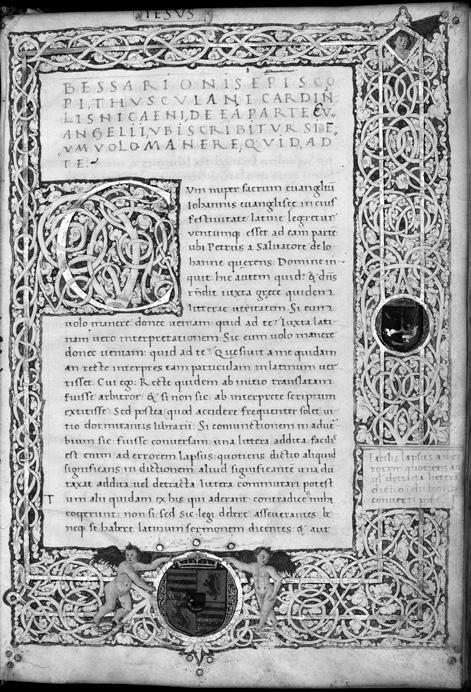 IESUS
BESSARIONIS EPISCO
PI, THVSCVLANI CARDIN
LIS NICAENI, DE EA PARTE EV,
ANGELII VBI SCRIBITVR SI E,
VM VOLO MANERE, QVID, AD
TE
Cum nuper sacrum euangelii
Iohannis euangliste in eius
festiuitate latine legeretur
uentumq; esset ad eam parte
ubi Petrus a Saluatore de Io
hanne querens: Domine in
quit. hic autem quid? & dñs
rñdit iuxta grece quidem
litterae ueritatem Si eum
uolo manere. donec ueniam. quid ad te? Iuxta lati
nam uero interpretationem Sic eum uolo manere
donec ueniam. quid ad te? Quesiuit a me quidam
an recte interpres eam particulam in latinum uer
tisset. Cui ego: Recte quidem ab initio translatam
fuisse arbitror. & si non sic. ab interprete scriptum
extitisse: Sed postea quod accidere frequenter solet ui
tio dormitantis librarii: Si coniunctionem in aduer
bium sic. fuisse conuersam. una littera addita. facilis
est enim ad errorem lapsus: quotiens dictio aliquid
significans in dictionem aliud significante una dũ
taxat addita uel detracta littera commutari potest
um alii quidam ex his qui aderant. contradice mihi
coeperunt: non si. sed sic legi debere. asseuerantes:
neq; se habere latinum sermonem dicentes: & aut
T
Facilis lapsus a uer
quotiens
uel detracta littera